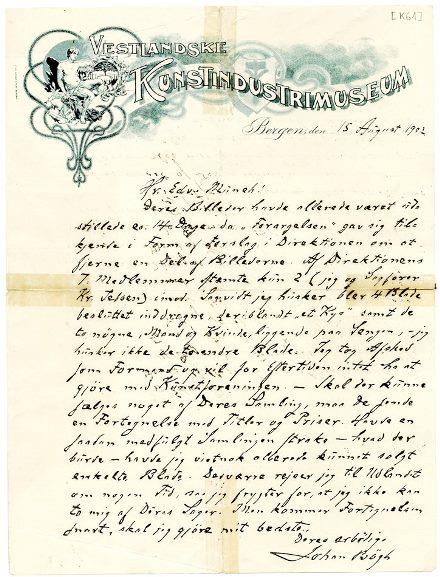 [K61]
VESTLANDSKE
KUNSTINDUSTRIMUSEUM
Bergen, den 15 August 1902
Hr. Edv. Munch!
Deres Billeder havde allerede været ud-
stillede ca. 14 Dage da "Forargelsen" gav sig til-
kjende i Form af Forslag i Direktionen om at
fjerne en Del af Billederne. Af Direktionens
7 Medlemmer stemte kun 2 (jeg og Sagfører
Kr. Jebsen) imod. Saavidt jeg husker blev 4 Blade
besluttet inddragne, deriblandt "et Kys" samt de
to nøgne, Mand og Kvinde, liggende paa Sengen, - jeg
husker ikke de to andre Blade. Jeg tog Afsked
som Formand og vil for Eftertiden intet ha at
gjøre med Kunstforeningen. - Skal der kunne
sælges noget af Deres Samling, maa De sende
en Fortegnelse med Titler og Priser. Havde en
saadan medfulgt Samlingen straks - hvad der
burde - havde jeg vistnok allerede kunnet solgt
enkelte Blade. Desværre rejser jeg til Udlandet
om nogen Tid, saa jeg frygter for, at jeg ikke kan
ta mig af Deres Sager. Men kommer Fortegnelsen
snart, skal jeg gjøre mit bedste.
Deres ærbødige
Johan Bøgh